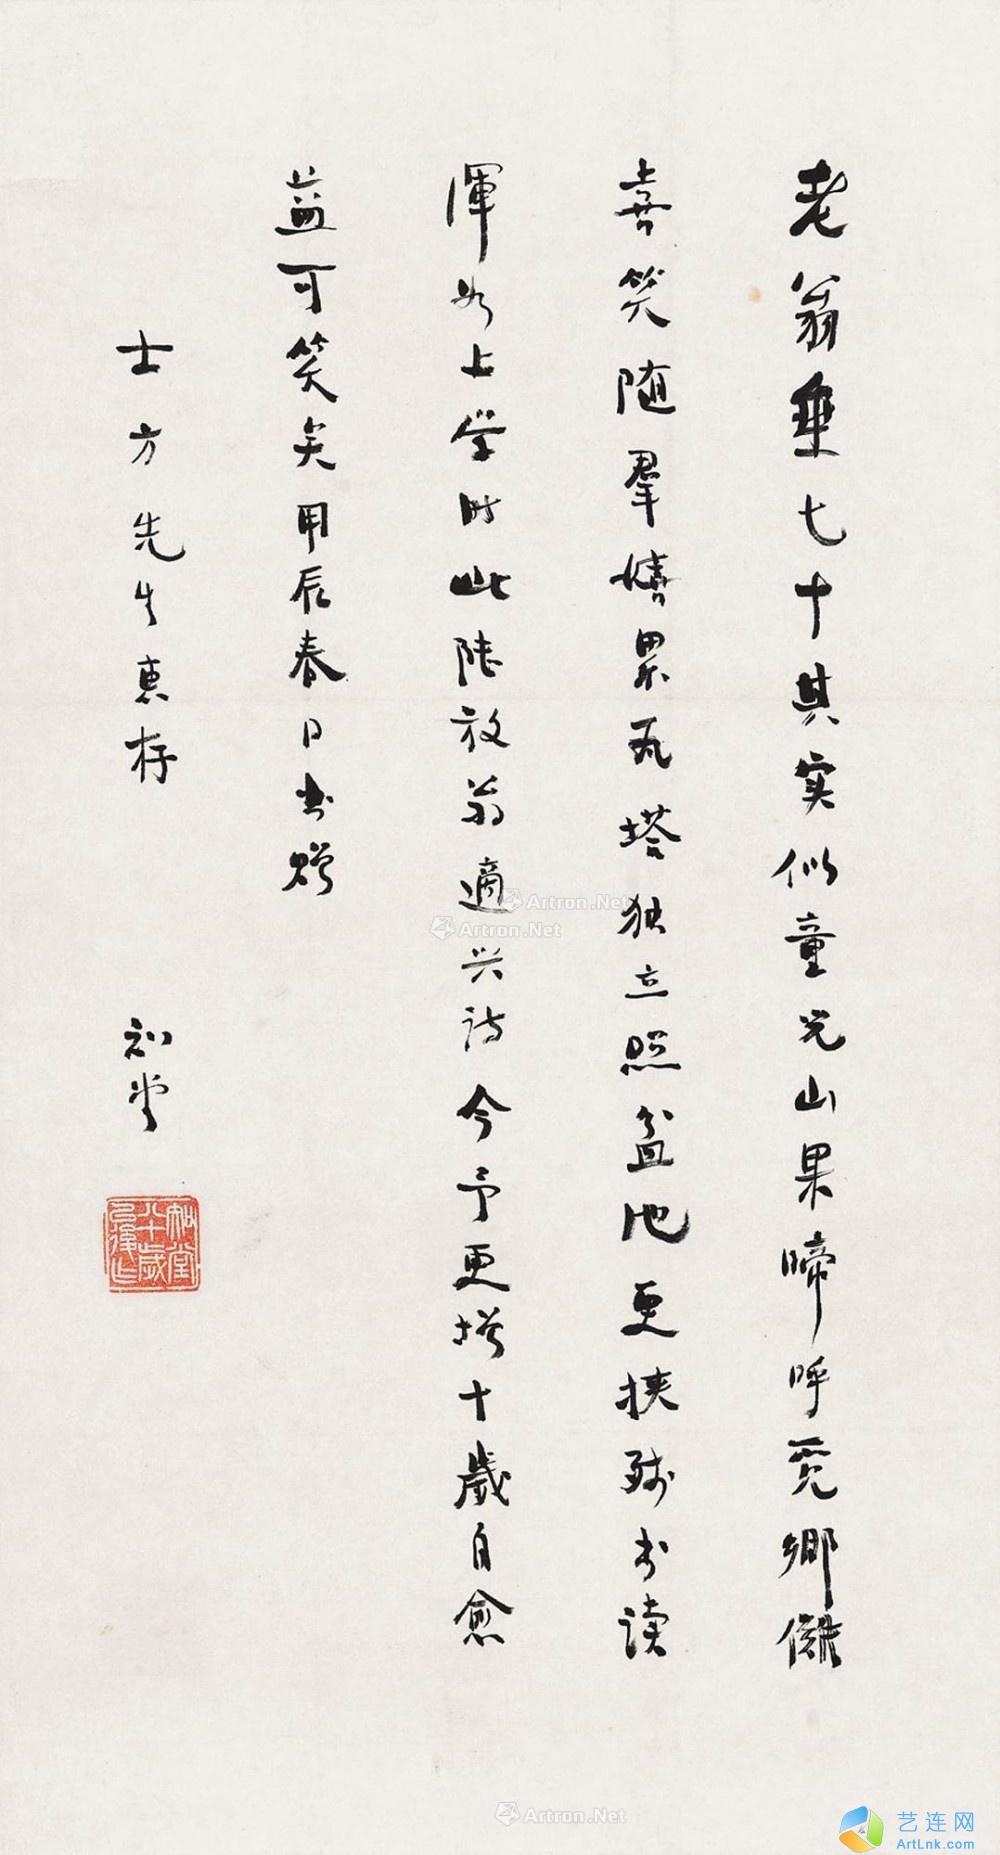 老翁垂七十其实似童兒山果啼呼覓鄉儺
喜笑随羣嬉累瓦塔独立照盆池更挟残书读
渾如上学时此陸放翁適兴诗今予更增十歲自愈
益可笑矣甲辰春日书赠
士方先生惠存
知堂
知堂
八十歲
以後作
Artron.Net
Artron.Net
Artron.Net
艺连网
ArtLnk.com